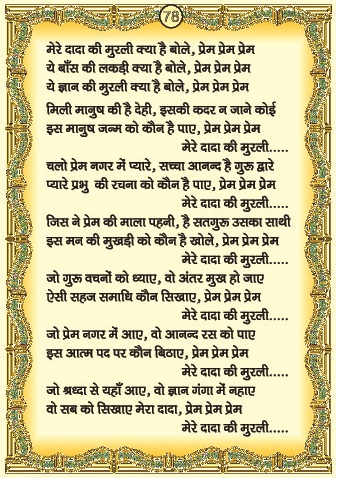 78
मेरे दादा की मुरली क्या है बोले, प्रेम प्रेम प्रेम
ये बाँस की लकड़ी क्या है बोले, प्रेम प्रेम प्रेम
ये ज्ञान की मुरली क्या है बोले, प्रेम प्रेम प्रेम
मिली मानुष की है देही, इसकी कदर न जाने कोई
इस मानुष जन्म को कौन है पाए, प्रेम प्रेम प्रेम
मेरे दादा की मुरली.....
चलो प्रेम नगर में प्यारे, सच्चा आनन्द है गुरू द्वारे
प्यारे प्रभु की रचना को कौन है पाए, प्रेम प्रेम प्रेम
मेरे दादा की मुरली.....
जिस ने प्रेम की माला पहनी, है सतगुरू उसका साथी
इस मन की मुखड़ी को कौन है खोले, प्रेम प्रेम प्रेम
मेरे दादा की मुरली.....
जो गुरू वचनों को ध्याए, वो अंतर मुख हो जाए
ऐसी सहज समाधि कौन सिखाए, प्रेम प्रेम प्रेम
मेरे दादा की मुरली.....
जो प्रेम नगर में आए, वो आनन्द रस को पाए
इस आत्म पद पर कौन बिठाए, प्रेम प्रेम प्रेम
मेरे दादा की मुरली.....
जो श्रध्दा से यहाँ आए, वो ज्ञान गंगा में नहाए
वो सब को सिखाए मेरा दादा, प्रेम प्रेम प्रेम
मेरे दादा की मुरली.....